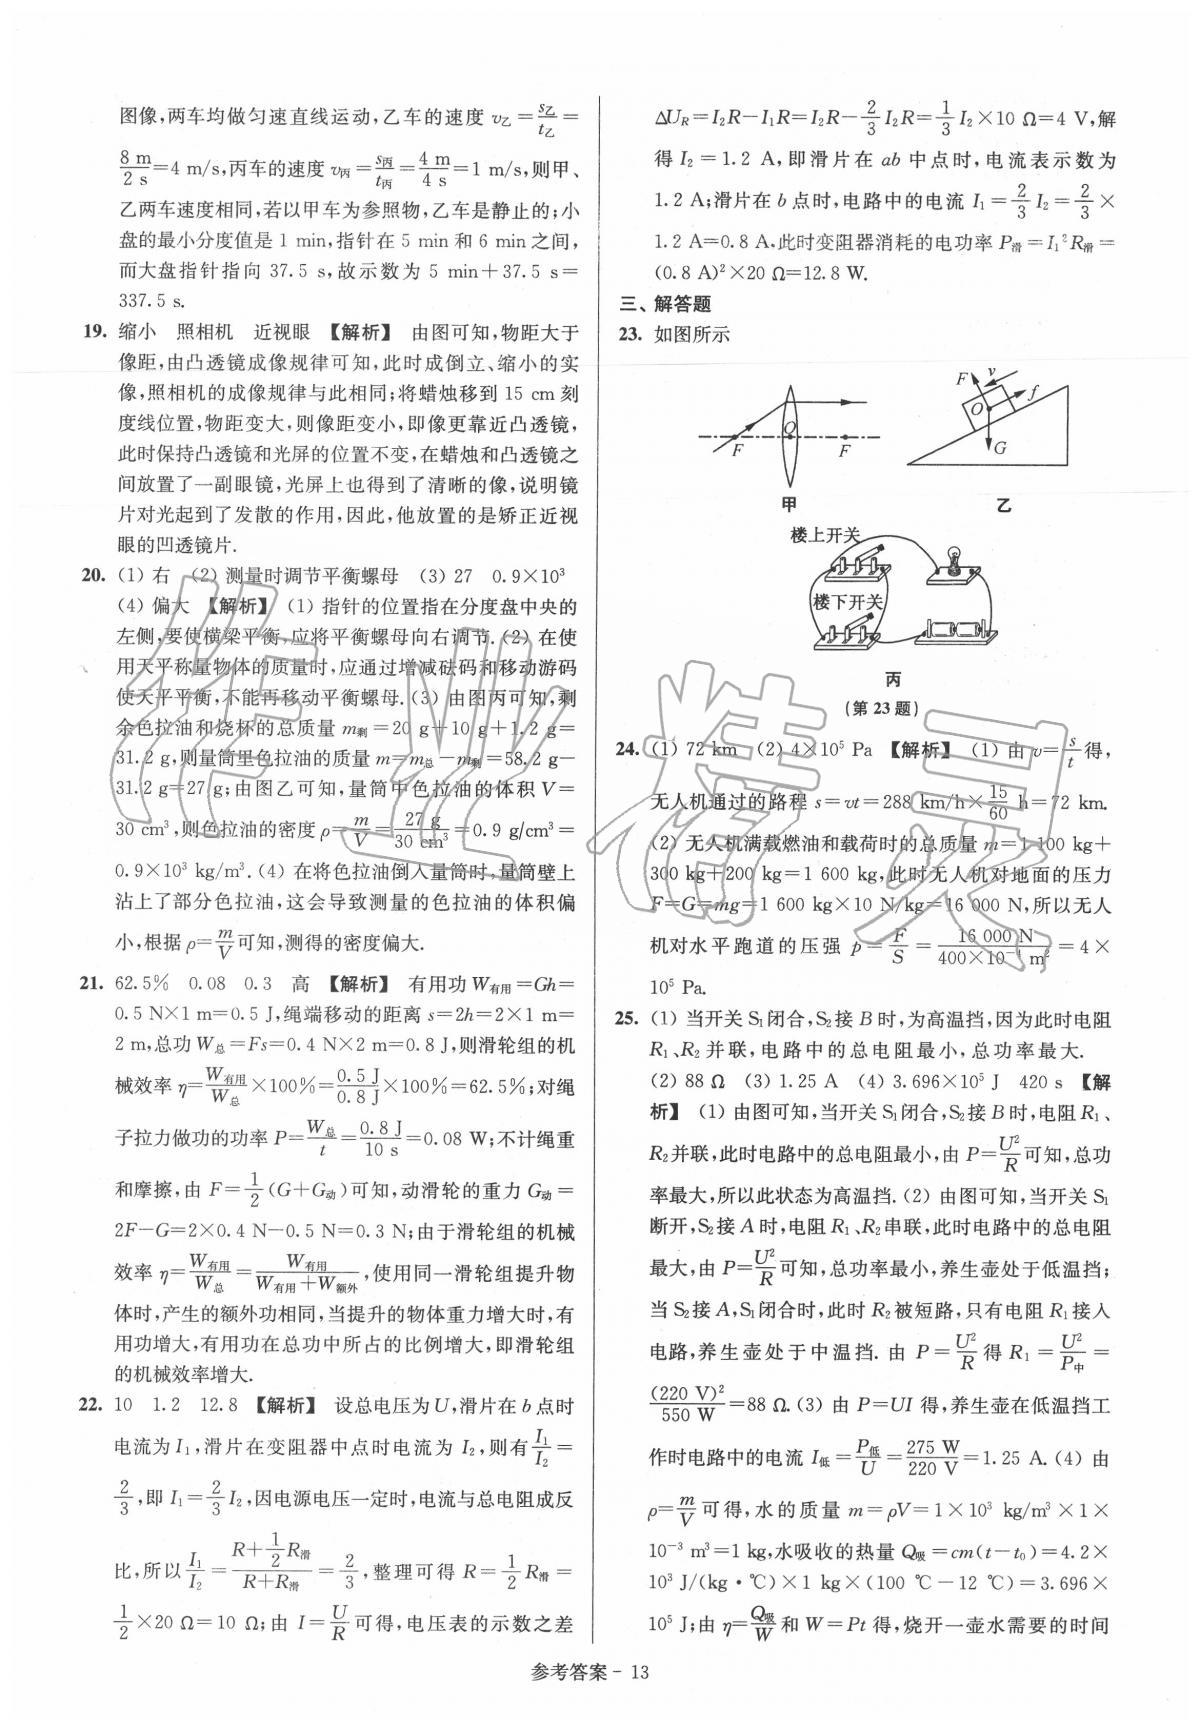 图像,两车均做匀速直线运动,乙车的速度 v乙 = s乙/t乙 =
8 m/2 s = 4 m/s,丙车的速度 v丙 = s丙/t丙 = 4 m/4 s = 1 m/s,则甲、
乙两车速度相同,若以甲车为参照物,乙车是静止的;小
盘的最小分度值是 1 min,指针在 5 min 和 6 min 之间,
而大盘指针指向 37.5 s,故示数为 5 min+37.5 s=
337.5 s.
19. 缩小 照相机 近视眼 【解析】 由图可知,物距大于
像距,由凸透镜成像规律可知,此时成倒立、缩小的实
像,照相机的成像规律与此相同;将蜡烛移到 15 cm 刻
度线位置,物距变大,则像距变小,即像更靠近凸透镜,
此时保持凸透镜和光屏的位置不变,在蜡烛和凸透镜之
间放置了一副眼镜,光屏上也得到了清晰的像,说明镜
片对光起到了发散的作用,因此,他放置的是矫正近视
眼的凹透镜片.
20. (1) 右 (2) 测量时调节平衡螺母 (3) 27 0.9×10³
(4) 偏大 【解析】 (1) 指针的位置指在分度盘中央的
左侧,要使横梁平衡,应将平衡螺母向右调节.(2) 在使
用天平称量物体的质量时,应通过增减砝码和移动游码
使天平平衡,不能再移动平衡螺母.(3) 由图丙可知,剩
余色拉油和烧杯的总质量 m剩=20 g+10 g+1.2 g=
31.2 g,则量筒里色拉油的质量 m=m总-m剩=58.2 g-
31.2 g=27 g;由图乙可知,量筒中色拉油的体积 V=
30 cm³,则色拉油的密度 ρ= m/V = 27 g/30 cm³ =0.9 g/cm³=
0.9×10³ kg/m³.(4) 在将色拉油倒入量筒时,量筒壁上
沾上了部分色拉油,这会导致测量的色拉油的体积偏
小,根据 ρ= m/V 可知,测得的密度偏大.
21. 62.5% 0.08 0.3 高 【解析】 有用功 W有用=Gh=
0.5 N×1 m=0.5 J,绳端移动的距离 s=2h=2×1 m=
2 m,总功 W总=Fs=0.4 N×2 m=0.8 J,则滑轮组的机
械效率 η= W有用/W总 ×100%= 0.5 J/0.8 J ×100%=62.5%;对绳
子拉力做功的功率 P= W总/t = 0.8 J/10 s =0.08 W;不计绳重
和摩擦,由 F= 1/2 (G+G动)可知,动滑轮的重力 G动=
2F-G=2×0.4 N-0.5 N=0.3 N;由于滑轮组的机械
效率 η= W有用/W总 = W有用/(W有用+W额外) ,使用同一滑轮组提升物
体时,产生的额外功相同,当提升的物体重力增大时,有
用功增大,有用功在总功中所占的比例增大,即滑轮组
的机械效率增大.
22. 10 1.2 12.8 【解析】 设总电压为 U,滑片在 b 点时
电流为 I₁,滑片在变阻器中点时电流为 I₂,则有 I₁/I₂ =
2/3 ,即 I₁= 2/3 I₂,因电源电压一定时,电流与总电阻成反
比,所以 I₁/I₂ = (R+1/2 R滑)/(R+R滑) = 2/3 ,整理可得 R= 1/2 R滑=
1/2 ×20 Ω=10 Ω;由 I= U/R 可得,电压表的示数之差
ΔU_R=I₂R-I₁R=I₂R- 2/3 I₂R= 1/3 I₂×10 Ω=4 V,解
得 I₂=1.2 A,即滑片在 ab 中点时,电流表示数为
1.2 A;滑片在 b 点时,电路中的电流 I₁= 2/3 I₂= 2/3 ×
1.2 A=0.8 A,此时变阻器消耗的电功率 P滑=I₁²R滑=
(0.8 A)²×20 Ω=12.8 W.
三、解答题
23. 如图所示
F O F
甲
F v f O G
乙
楼上开关
楼下开关
丙
(第 23 题)
24. (1) 72 km (2) 4×10⁵ Pa 【解析】 (1) 由 v= s/t 得,
无人机通过的路程 s=vt=288 km/h× 15/60 h=72 km.
(2) 无人机满载燃油和载荷时的总质量 m=1 100 kg+
300 kg+200 kg=1 600 kg,此时无人机对地面的压力
F=G=mg=1 600 kg×10 N/kg=16 000 N,所以无人
机对水平跑道的压强 p= F/S = 16 000 N/(400×10⁻⁴ m²) =4×
10⁵ Pa.
25. (1) 当开关 S₁闭合,S₂接 B 时,为高温挡,因为此时电阻
R₁、R₂ 并联,电路中的总电阻最小,总功率最大.
(2) 88 Ω (3) 1.25 A (4) 3.696×10⁵ J 420 s 【解
析】 (1) 由图可知,当开关 S₁闭合,S₂接 B 时,电阻 R₁、
R₂并联,此时电路中的总电阻最小,由 P= U²/R 可知,总功
率最大,所以此状态为高温挡.(2) 由图可知,当开关 S₁
断开,S₂接 A 时,电阻 R₁、R₂串联,此时电路中的总电阻
最大,由 P= U²/R 可知,总功率最小,养生壶处于低温挡;
当 S₂接 A,S₁闭合时,此时 R₂被短路,只有电阻 R₁接入
电路,养生壶处于中温挡.由 P= U²/R 得 R₁= U²/P中 =
(220 V)²/550 W =88 Ω.(3) 由 P=UI 得,养生壶在低温挡工
作时电路中的电流 I低= P低/U = 275 W/220 V =1.25 A.(4) 由
ρ= m/V 可得,水的质量 m=ρV=1×10³ kg/m³×1×
10⁻³ m³=1 kg,水吸收的热量 Q吸=cm(t-t₀)=4.2×
10³ J/(kg·℃)×1 kg×(100 ℃-12 ℃)=3.696×
10⁵ J;由 η= Q吸/W 和 W=Pt 得,烧开一壶水需要的时间
作业精灵
参考答案 - 13